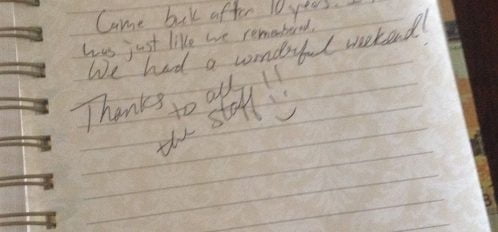 Came back after 10 years.
was just like we remembered.
We had a wonderful weekend!
Thanks to all
the staff!!